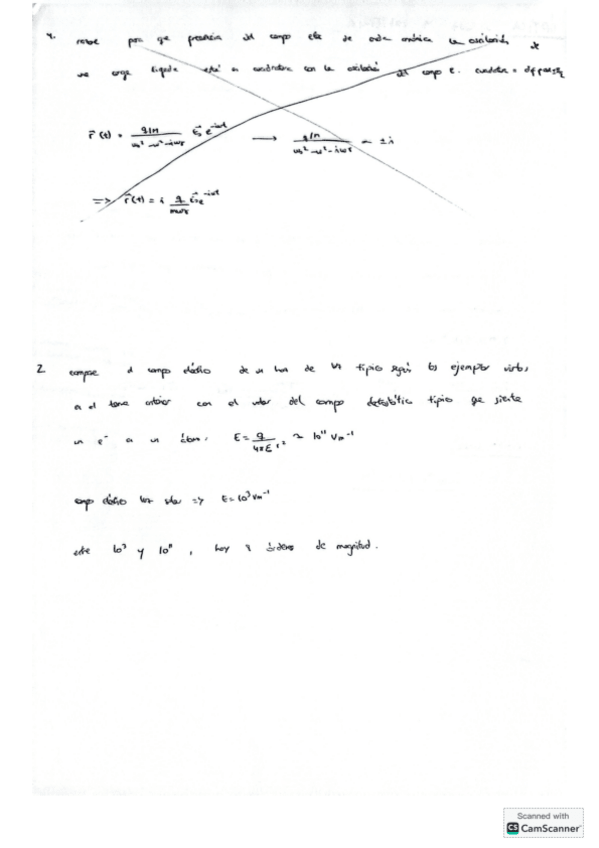 1. razone para que frecuencia del campo elec de onda armónica la oscilación de
una carga ligada está en cuadratura con la oscilación del campo E. cuadratura =
r⃗(t) = q/m / (ω₀² - ω² - iωγ) E⃗₀ e^(-iωt) → q/m / (ω₀² - ω² - iωγ) ~ ±i
=> r⃗(t) = i q / (mωγ) E⃗₀ e^(-iωt)
2 compare el campo eléctrico de un haz de típico según los ejemplos vistos
en el tema anterior con el valor del campo típico que siente
un e⁻ en un átomo. E = q / (4πε r²) ≈ 10¹¹ Vm⁻¹
campo eléctrico luz solar => E = 10³ Vm⁻¹
entre 10³ y 10¹¹, hay 8 órdenes de magnitud.
Scanned with
CS CamScanner